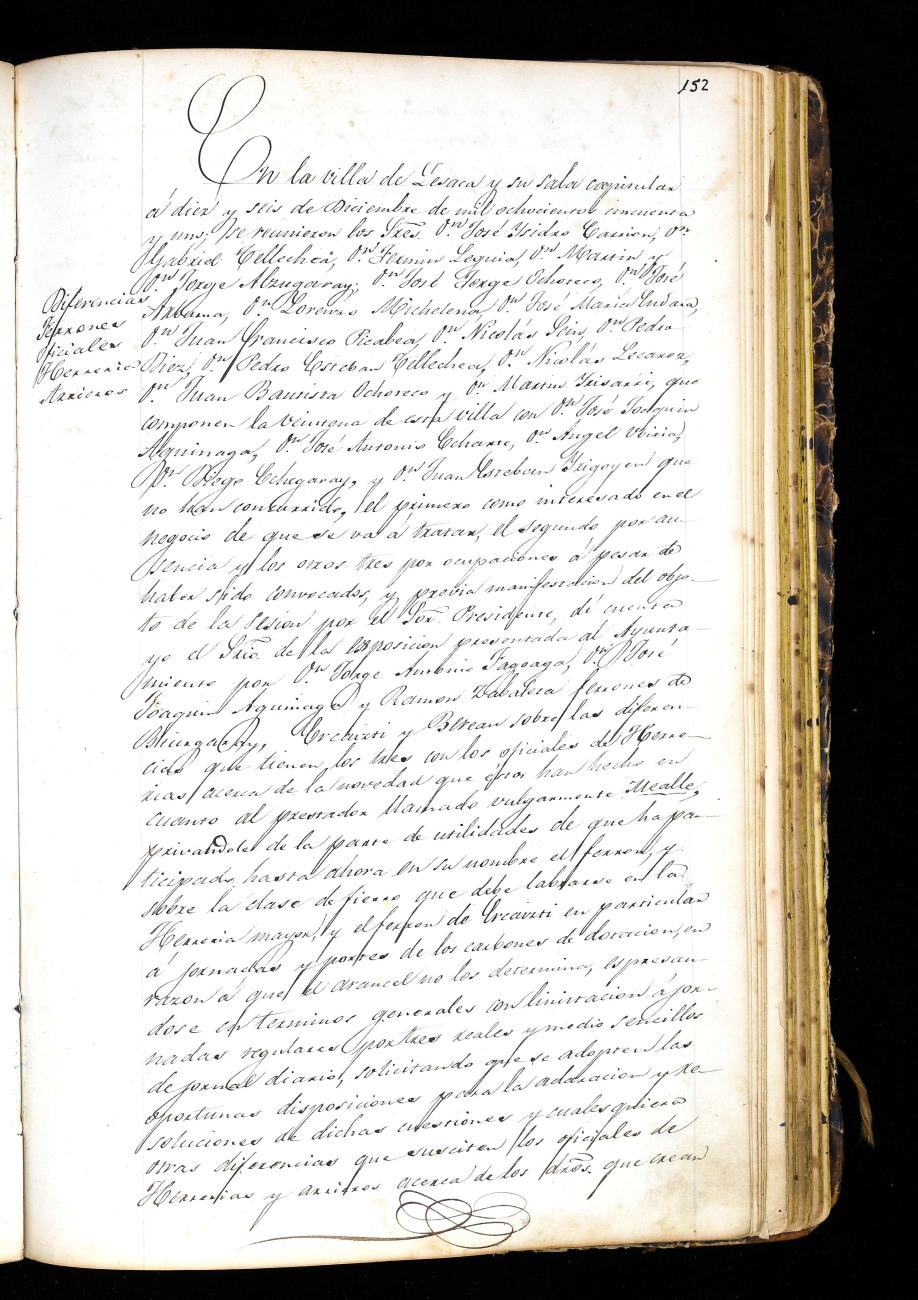 152
En la villa de Lesaca y su sala capitular
á diez y seis de Diciembre de mil ochocientos cincuenta
y uno; se reunieron los Sres. Dn. José Ysidro Carrion, Dn.
Gabriel Tellechea, Dn. Fermin Leguia, Dn. Martin y
Dn. Jorge Alzugaray, Dn. José Jorge Echoreco, Dn. José
Diferencias
Ferrones
Oficiales
Herrerias
Arrieros
Dn. Lorenzo Michelena, Dn. José Maria Endara,
Dn. Juan Francisco Picabea, Dn. Nicolás Sein, Dn. Pedro
Diez, Dn. Pedro Esteban Tellechea, Dn. Nicolás Lecaroz,
Dn. Juan Bautista Ochoreco y Dn. Martin Yrisarri, que
componen la veintena de esta villa con Dn. José Joaquin
Aguinaga, Dn. José Antonio Echarte, Dn. Angel Ubiria,
Dn. Diego Echegaray, y Dn. Juan Esteban Yrigoyen que
no han concurrido, el primero como interesado en el
negocio de que se va á tratar, el segundo por au-
sencia y los otros tres por ocupaciones á pesar de
haber sido convocados, y previa manifestacion del obge-
to de la sesion por el Sor. Presidente, dí cuenta
yo el Srio. de la exposicion presentada al Ayunta-
miento por Dn. Jorge Antonio Fagoaga, Dn. José
Joaquin Aguinaga y Ramon Zabaleta ferrones de
Biurgaray, y Berean sobre las diferen-
cias que tienen los tres con los oficiales de Herre-
rias acerca de la novedad que éstos han hecho en
cuanto al prestador llamado vulgarmente Mealle,
privandoles de la parte de utilidades de que ha par-
ticipado hasta ahora en su nombre el ferron, y
sobre la clase de fierro que debe labrarse en la
Herreria mayor, y el ferron de en particular
á jornadas y portes de los carbones de dotacion, en
razon á que el arancel no los determina, espresan-
dose en terminos generales con limitacion á jor-
nadas regulares por tres reales y medio sencillos
de jornal diario, solicitando que se adopten las
oportunas disposiciones para la aclaracion y re-
soluciones de dichas cuestiones y cualesquiera
otras diferencias que susciten los oficiales de
Herrerias y arrieros acerca de los dros. que crean